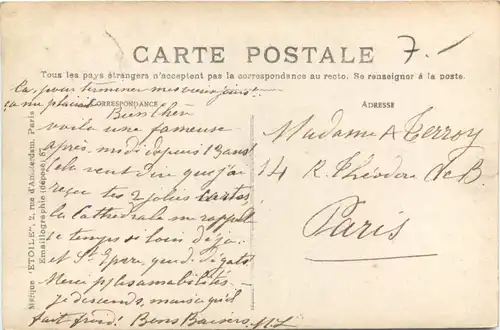 CARTE POSTALE
7.-
Tous les pays étrangers n'acceptent pas la correspondance au recto. Se renseigner à la poste.
Là, pour terminer mes vieux jours
ça me plairait
CORRESPONDANCE
ADRESSE
Bien chère
voilà une fameuse
après midi depuis 13 ans!
cela veut dire que j'ai
reçu tes 2 jolies cartes,
la Cathédrale me rappelle
le temps si loin déjà.
et St Epvre, que de dégâts
Merci pr ttes amabilités -
je descends, mais qu'il
fait froid! Bons Baisers
Madame A Terroy
14 R. Théodore de B.
Paris
Marque "ETOILE", 2, rue d'Amsterdam, Paris
Emaillographie (déposé) 87